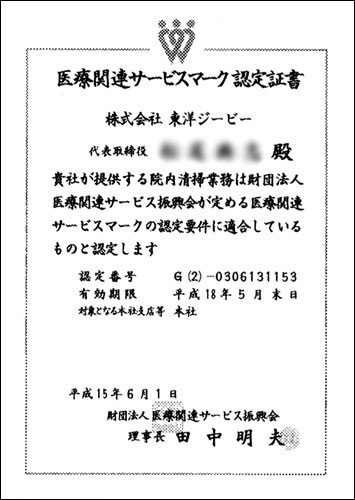 医療関連サービスマーク認定証書
株式会社 東洋ジービー
代表取締役 殿
貴社が提供する院内清掃業務は財団法人
医療関連サービス振興会が定める医療関連
サービスマークの認定要件に適合している
ものと認定します
認定番号 G(2)-0306131153
有効期限 平成18年5月末日
対象となる本社支店等 本社
平成15年6月1日
財団法人医療関連サービス振興会
理事長 田中明夫